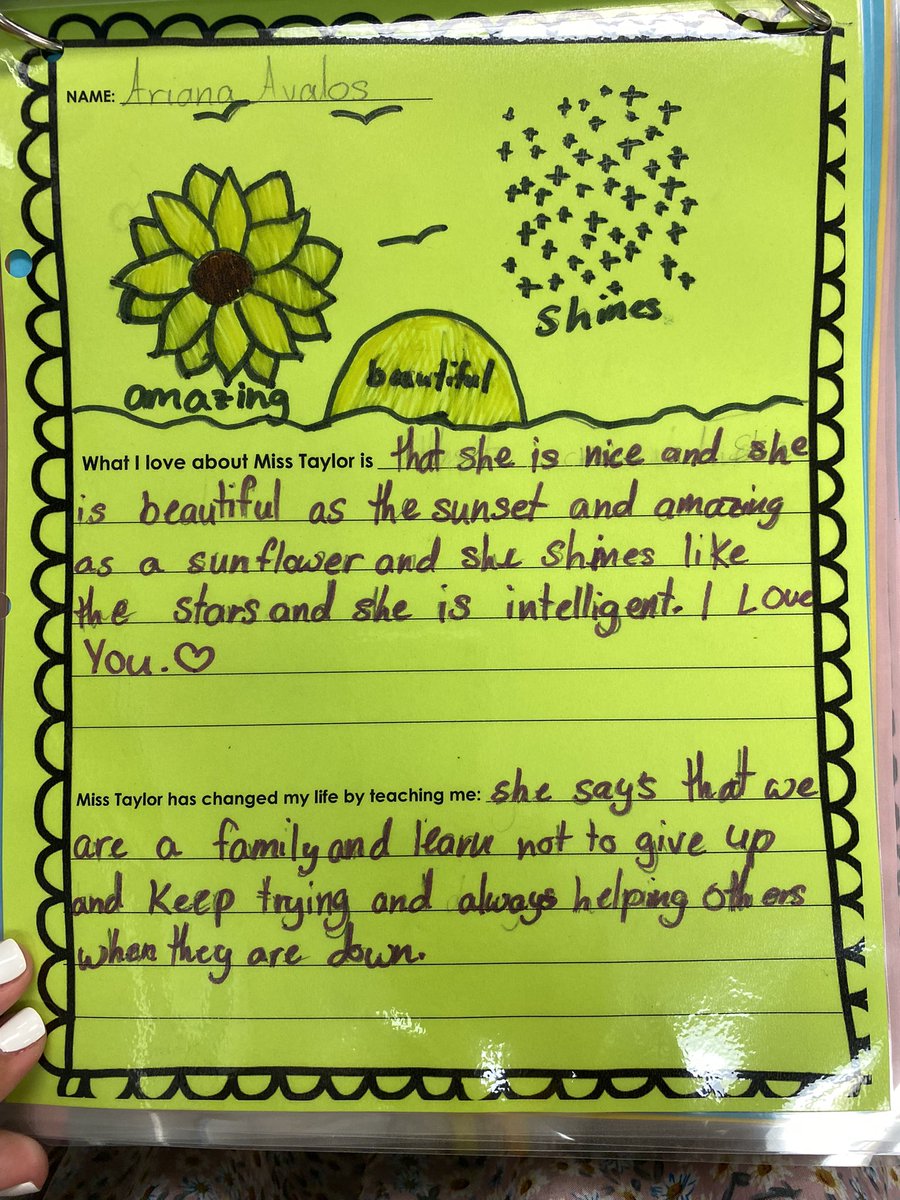 NAME: Ariana Avalos
shines
beautiful
amazing
What I love about Miss Taylor is that she is nice and she
is beautiful as the sunset and amazing
as a sunflower and she shines like
the stars and she is intelligent. I Love
You. ♡
Miss Taylor has changed my life by teaching me: she says that we
are a family and learn not to give up
and keep trying and always helping others
when they are down.